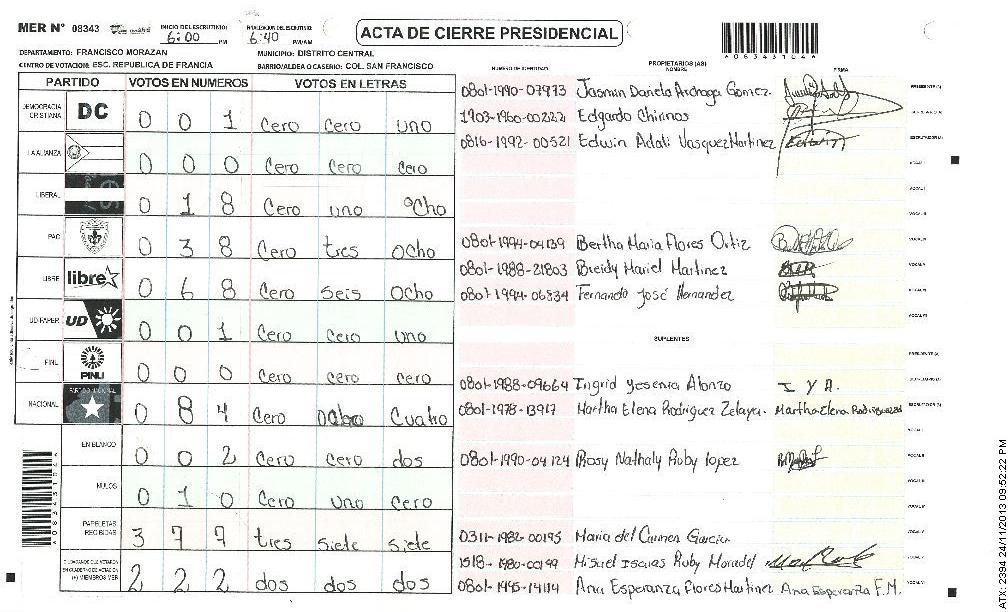 MER Nº 08343 INICIO DEL ESCRUTINIO: 6:00 PM 6:40 PM/AM
ACTA DE CIERRE PRESIDENCIAL
A08343104A
DEPARTAMENTO: FRANCISCO MORAZAN MUNICIPIO: DISTRITO CENTRAL
CENTRO DE VOTACION: ESC. REPUBLICA DE FRANCIA BARRIO/ALDEA O CASERIO: COL. SAN FRANCISCO
NUMERO DE IDENTIDAD PROPIETARIOS (AS) NOMBRE FIRMA
PARTIDO VOTOS EN NUMEROS VOTOS EN LETRAS
DEMOCRACIA CRISTIANA DC 0 0 1 Cero Cero uno
LA ALIANZA 0 0 0 Cero Cero Cero
LIBERAL 0 1 8 Cero uno Ocho
PAC 0 3 8 Cero tres Ocho
LIBRE libre 0 6 8 Cero seis Ocho
UD/FAPER UD 0 0 1 Cero Cero uno
PINU PINU 0 0 0 Cero Cero cero
NACIONAL PARTIDO NACIONAL 0 8 4 Cero Ocho Cuatro
EN BLANCO 0 0 2 Cero Cero dos
NULOS 0 1 0 Cero uno Cero
PAPELETAS RECIBIDAS 3 7 7 tres siete siete
2 2 2 dos dos dos
0801-1990-07973 Jasmin Daniela Andraga Gomez.
1703-1960-00222 Edgardo Chirinos
0816-1992-00521 Edwin Adali Vasquez Martinez Edwin
0801-1994-04139 Bertha Maria Flores Ortiz
0801-1988-21803 Breidy Mariel Martinez
0801-1994-06834 Fernando José Hernandez
SUPLENTES
0801-1988-09664 Ingrid Yesenia Alonzo I Y A.
0801-1978-13917 Martha Elena Rodriguez Zelaya. Martha Elena Rodriguez
0801-1990-04124 Rosy Nathaly Ruby lopez
0311-1982-00195 Maria del Carmen Garcia
1518-1980-00199 Misuel Isaias Ruby Moradel
0801-1945-14114 Ana Esperanza Flores Martinez Ana Esperanza F.M.
ATX: 2394 24/11/2013 09:52:22 PM